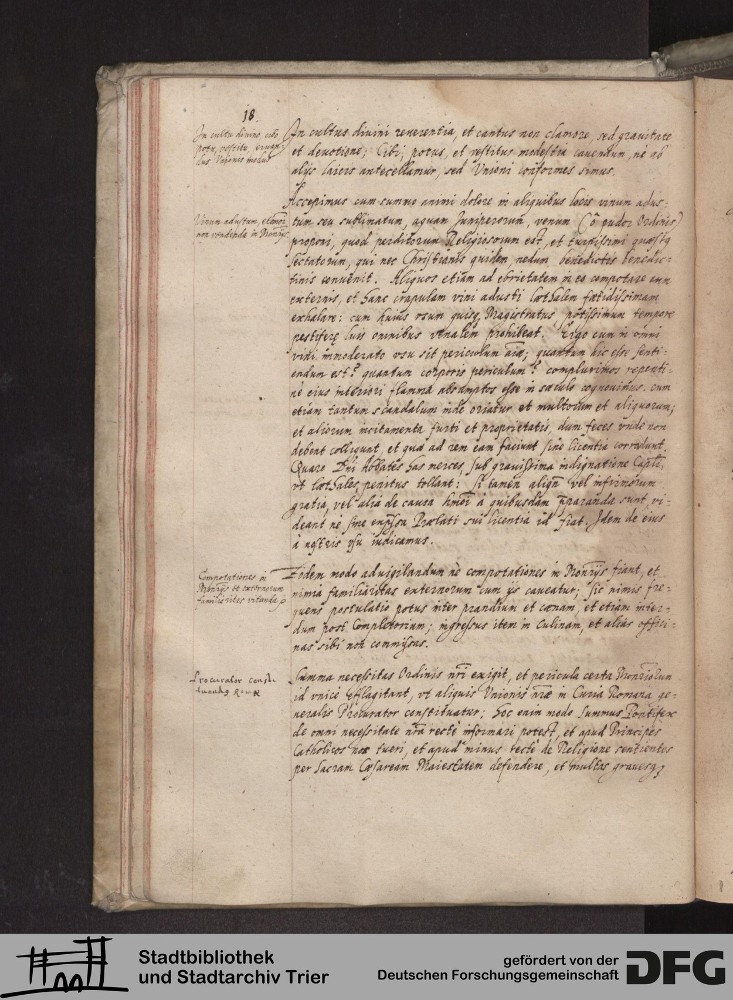 18
In cultu divino cibo
potu, vestitu,
dus Unionis modus
In cultus divini reverentia, et cantus non clamore, sed gravitate
et devotione; Cibi, potus, et vestitus modestia cavendum, nè ab
alijs laicis antecellamur, sed Unioni conformes simus.
Vinum adustum,
non vendenda in Monrijs.
Accepimus cum summo animi dolore in aliquibus locis vinum adus-
tum seu sublimatum, aquam Juniperorum, venum (ô pudor Ordinis)
proponi, quod perditorum Religiosorum est, et turpissimi quæstus
sectatorum, qui nec Christianis quidem nedum benedictis benedic-
tinis convenit. Aliquos etiam ad ebrietatem in ea compotare cum
externis, et hanc crapulam vini adusti lœthalem fœtidissimam
exhalare: cum huius usum quisq Magistratus potissimum tempore
pestiferę luis omnibus venalem prohibeat. Ergo cum in omni
vini immoderato usu sit periculum aīæ; quantum hic esse senti-
endum est? quantum corporis periculum? complurimos repenti-
nè eius interiori flamma absumptos esse in sæculo cognovimus. cum
etiam tantum scandalum inde oriatur et multorum et aliquorum;
et aliorum incitamenta furti et proprietatis, dum feces unde non
debent colligunt, et quæ ad rem eam faciunt sine licentia corradunt.
Quare Dnī Abbates has merces, sub gravissima indignatione Capli,
ut lœthales penitus tollant: si tamen aliqn vel infirmorum
gratia, vel alia de causa hmōi à quibusdam pparanda sunt vi-
deant nè sine exprssa Prælati sui licentia id fiat. Idem de eius
à nostris usu iudicamus.
Compotationes in
Monrijs et externorum
familiaritas vitanda
Eidem modo advigilandum nè compotationes in Monrijs fiant, et
nimia familiaritas externorum cum ijs caveatur; sic nimis fre-
quens postulatio potus inter prandium et cœnam, et etiam inter-
dum post Completorium; ingressus item in Culinam, et alias offici-
nas sibi non commissas.
Procurator consti-
tuendus Romæ
Summa necessitas Ordinis nrī exigit, et pericula certa Monriorum
id unicè efflagitant, ut aliquis Unionis nræ in Curia Romana ge-
neralis Procurator constituatur; hoc enim modo summus Pontifex
de omni necessitate nrā rectè informari potest, et apud Principes
Catholicos nos tueri, et apud minus rectè de Religione sentientes
per Sacram Cæsaream Maiestatem defendere, et multas gravesq
Stadtbibliothek
und Stadtarchiv Trier
gefördert von der
Deutschen Forschungsgemeinschaft
DFG